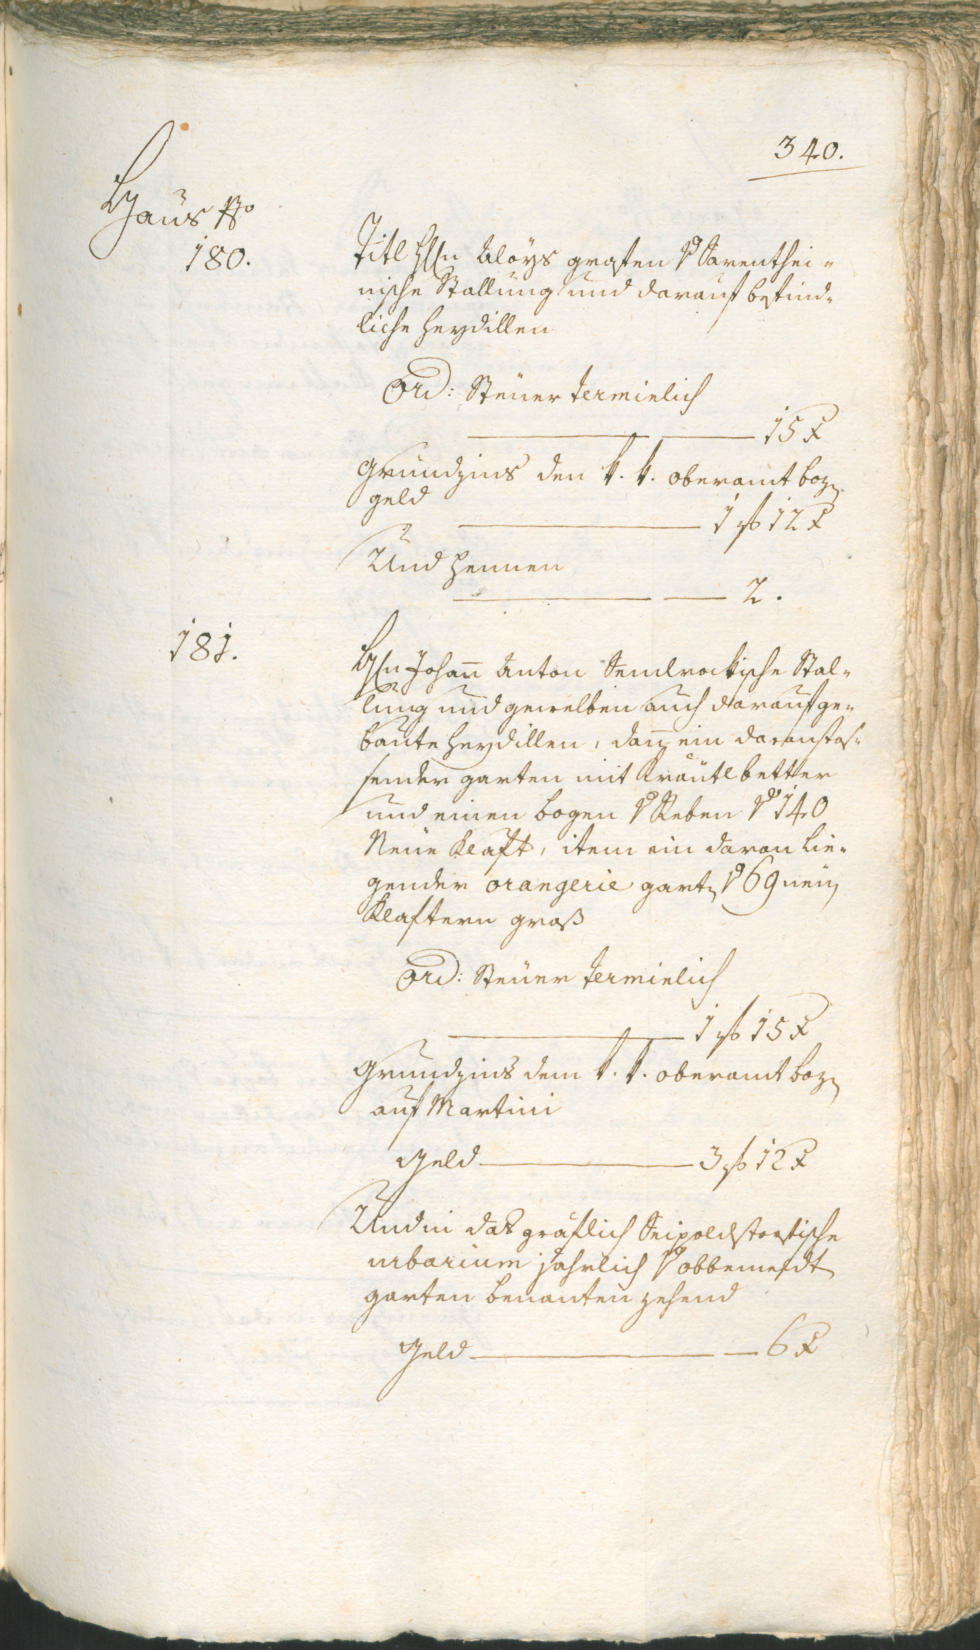 340.
Haus No
180.
Titl Hrn Aloys grafen v Sarenthei-
nische Stallung und darauf befind-
liche Heydillen
Ord: Steuer Terminlich
15 x
Grundzins den k. k. oberamt boz
geld
1 f 12 x
Und Hennen
2.
181.
Hrn Johann Anton Stal-
lung und gewelben auch darauf ge-
baute Heydillen, dan ein daranstos-
sender garten mit Kräutlbetter
und einen bogen v Reben v 140
Neue Klaft, item ein daran lie-
gender orangerie gart v 69 neu
Klaftern groß
Ord: Steuer Terminlich
1 f 15 x
Grundzins dem k. k. oberamt boz
auf Martini
Geld 3 f 12 x
Und in das gräflich
urbarium jahrlich v obbemeldt
garten benanten zehend
Geld 6 x